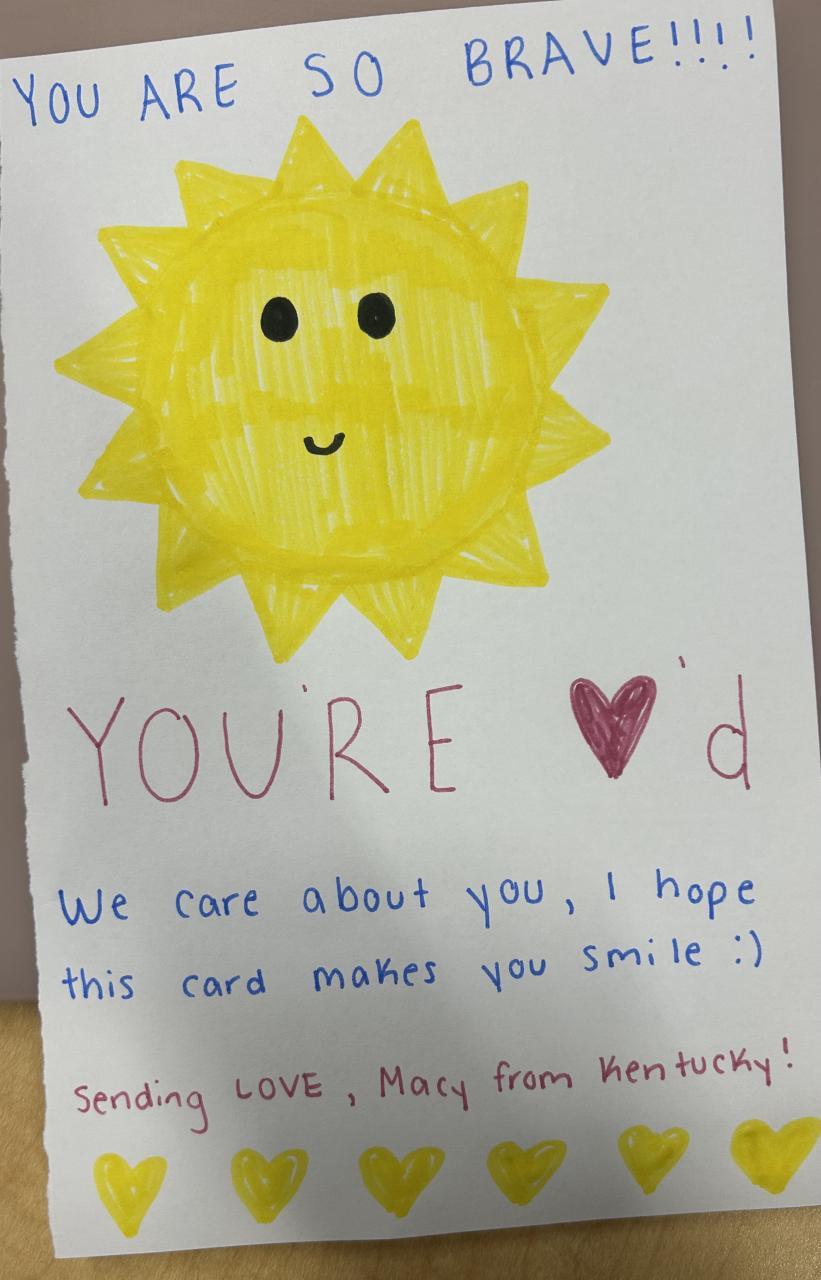 YOU ARE SO BRAVE!!!!
YOU'RE ♥'d
We care about you, I hope
this card makes you smile :)
Sending LOVE, Macy from Kentucky!